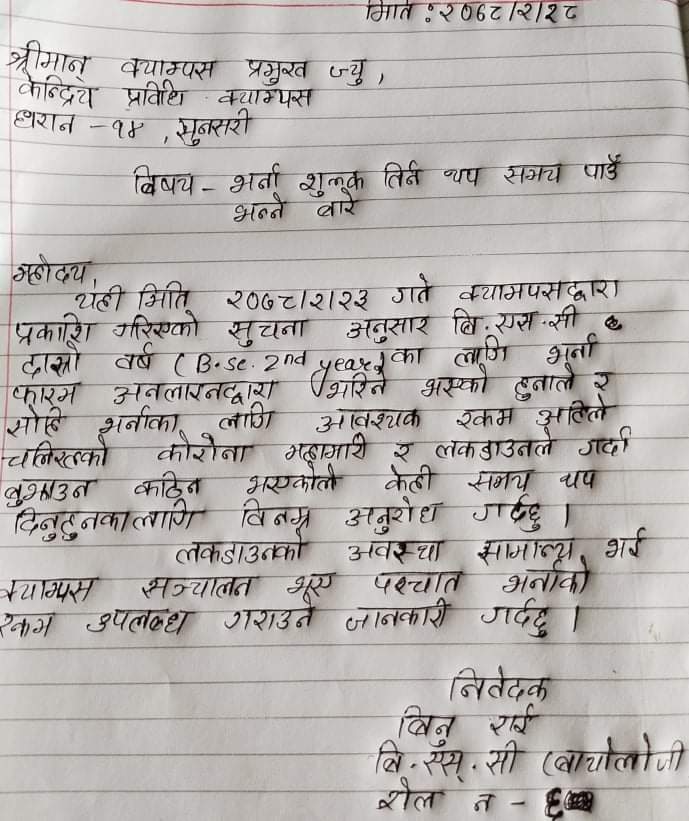 मिति : २०७८/२/२८
श्रीमान् क्याम्पस प्रमुख ज्यु ,
केन्द्रिय प्रविधि क्याम्पस
धरान - १४ , सुनसरी
बिषय - भर्ना शुल्क तिर्न थप समय पाउँ
भन्ने बारे
महोदय,
यही मिति २०७८/२/२३ गते क्यामपसद्वारा
प्रकाशि गरिएको सुचना अनुसार बि.एस.सी
दोस्रो वर्ष (B.sc. 2nd year) का लागि भर्ना
फारम अनलाइनद्वारा भरिने भएको हुनाले र
सोहि भर्नाका लागि आवश्यक रकम अहिले
चलिरहेको कोरोना महामारी र लकडाउनले गर्दा
बुझाउन कठिन भएकोले केही समय थप
दिनुहुनकालागि विनम्र अनुरोध गर्दछु ।
लकडाउनको अवस्था सामान्य भई
क्याम्पस सञ्चालन भए पश्चात भर्नाको
रकम उपलब्ध गराउने जानकारी गर्दछु ।
निवेदक
बिनु राई
बि.एस्.सी (बायोलोजी
रोल न - ६